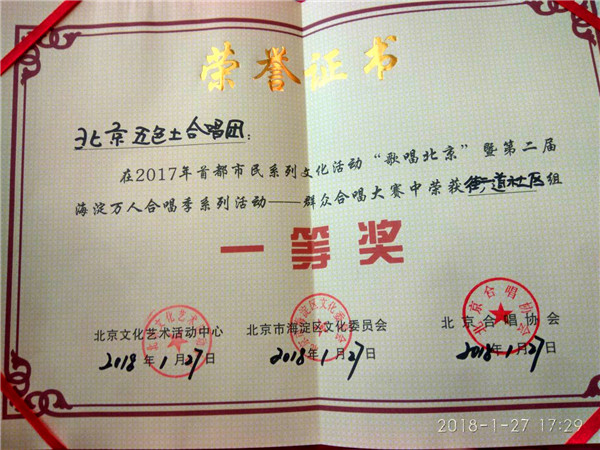 荣誉证书
北京五色土合唱团：
在2017年首都市民系列文化活动“歌唱北京”暨第二届
海淀万人合唱季系列活动——群众合唱大赛中荣获街道社区组
一等奖
北京文化艺术活动中心 北京市海淀区文化委员会 北京合唱协会
2018年1月27日 2018年1月27日 2018年1月27日
2018-1-27 17:29